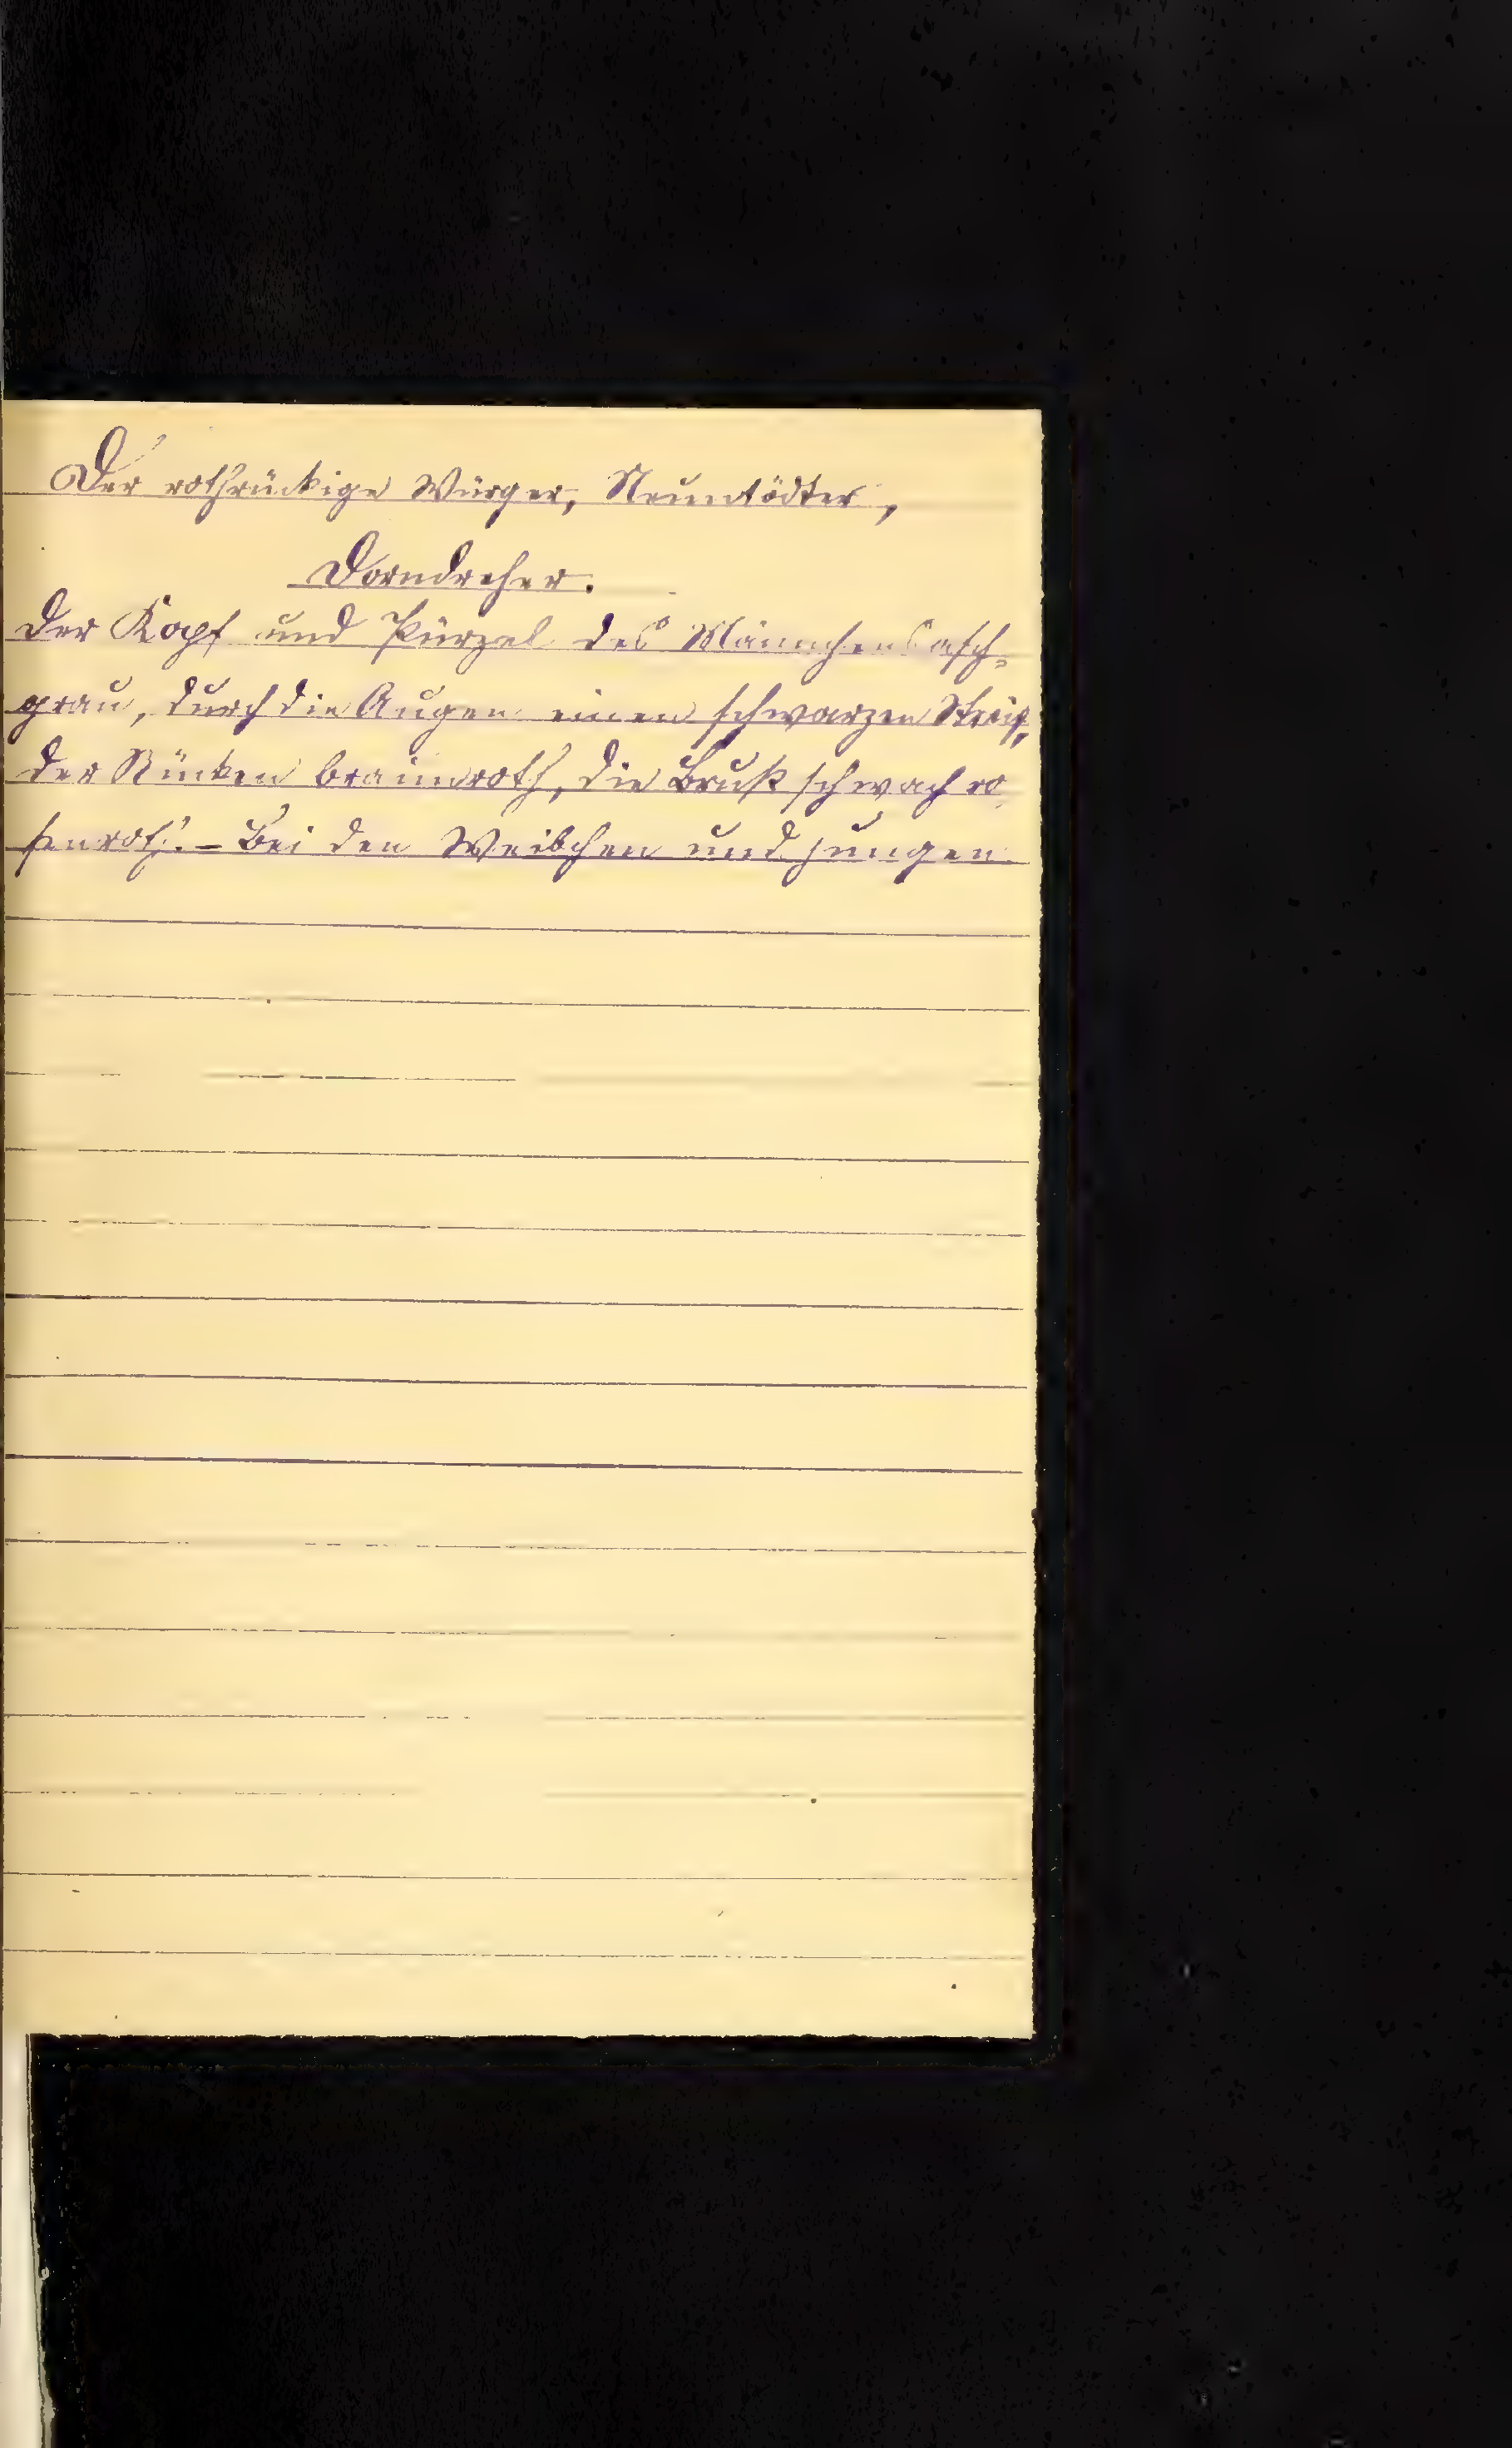 Der rothrückige Würger, Neuntödter,
Dorndreher.
Der Kopf und Pürzel des Männchens asch-
grau, durch die Augen einen schwarzen Streif,
der Rücken braunroth, die Brust schwach ro
senroth. – Bei den Weibchen und jungen